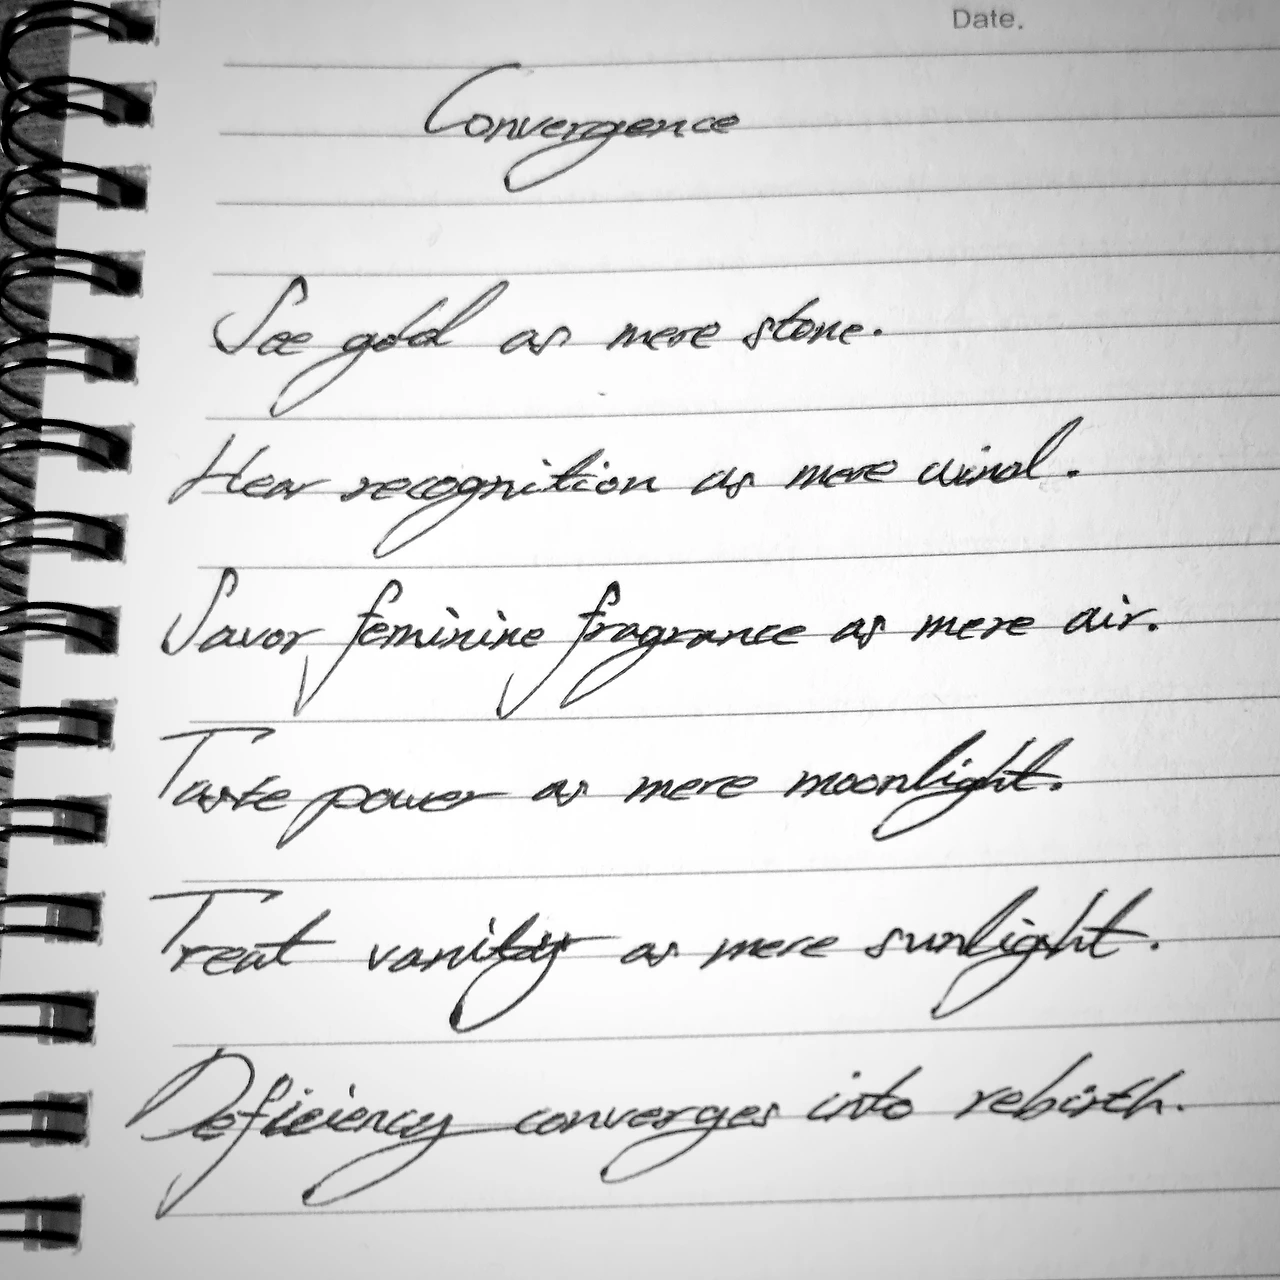 Date.
Convergence
See gold as mere stone.
Hear recognition as mere wind.
Savor feminine fragrance as mere air.
Taste power as mere moonlight.
Treat vanity as mere sunlight.
Deficiency converges into rebirth.